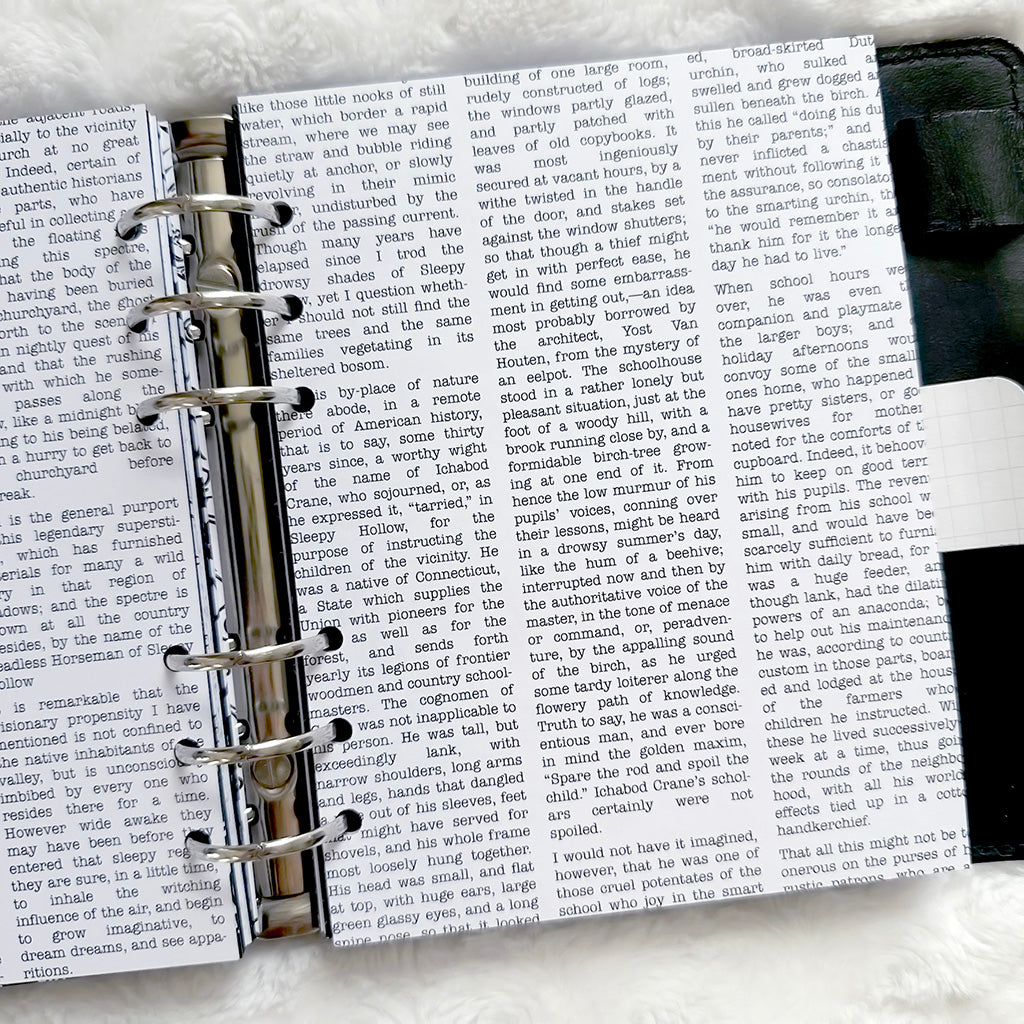 the adjacent roads,
ially to the vicinity
urch at no great
Indeed, certain of
authentic historians
parts, who have
eful in collecting
the floating
ing this spectre,
hat the body of the
having been buried
churchyard, the ghost
orth to the scene
n nightly quest of his
and that the rushing
with which he some-
passes along the
w, like a midnight
ng to his being belated,
n a hurry to get back to
churchyard before
reak.
is the general purport
this legendary supersti-
, which has furnished
erials for many a wild
ry in that region of
adows; and the spectre is
own at all the country
esides, by the name of the
eadless Horseman of
ollow
is remarkable that the
isionary propensity I have
mentioned is not confined to
the native inhabitants of
valley, but is unconscious
imbibed by every one who
resides there for a time.
However wide awake they
may have been before they
entered that sleepy
they are sure, in a little time,
to inhale the witching
influence of the air, and begin
to grow imaginative, to
dream dreams, and see appa-
ritions.
like those little nooks of still
water, which border a rapid
stream, where we may see
the straw and bubble riding
quietly at anchor, or slowly
revolving in their mimic
undisturbed by the
rush of the passing current.
Though many years have
elapsed since I trod the
drowsy shades of Sleepy
, yet I question wheth-
er should not still find the
same trees and the same
families vegetating in its
sheltered bosom.
is by-place of nature
there abode, in a remote
period of American history,
that is to say, some thirty
years since, a worthy wight
of the name of Ichabod
Crane, who sojourned, or, as
he expressed it, “tarried,” in
Sleepy Hollow, for the
purpose of instructing the
children of the vicinity. He
was a native of Connecticut,
a State which supplies the
Union with pioneers for the
as well as for the
forest, and sends forth
yearly its legions of frontier
woodmen and country school-
masters. The cognomen of
was not inapplicable to
his person. He was tall, but
exceedingly lank, with
narrow shoulders, long arms
and legs, hands that dangled
out of his sleeves, feet
that might have served for
shovels, and his whole frame
most loosely hung together.
His head was small, and flat
at top, with huge ears, large
green glassy eyes, and a long
snipe nose, so that it looked
building of one large room,
rudely constructed of logs;
the windows partly glazed,
and partly patched with
leaves of old copybooks. It
was most ingeniously
secured at vacant hours, by a
withe twisted in the handle
of the door, and stakes set
against the window shutters;
so that though a thief might
get in with perfect ease, he
would find some embarrass-
ment in getting out,—an idea
most probably borrowed by
the architect, Yost Van
Houten, from the mystery of
an eelpot. The schoolhouse
stood in a rather lonely but
pleasant situation, just at the
foot of a woody hill, with a
brook running close by, and a
formidable birch-tree grow-
ing at one end of it. From
hence the low murmur of his
pupils’ voices, conning over
their lessons, might be heard
in a drowsy summer’s day,
like the hum of a beehive;
interrupted now and then by
the authoritative voice of the
master, in the tone of menace
or command, or, peradven-
ture, by the appalling sound
of the birch, as he urged
some tardy loiterer along the
flowery path of knowledge.
Truth to say, he was a consci-
entious man, and ever bore
in mind the golden maxim,
“Spare the rod and spoil the
child.” Ichabod Crane’s schol-
ars certainly were not
spoiled.
I would not have it imagined,
however, that he was one of
those cruel potentates of the
school who joy in the smart
ed, broad-skirted Dut
urchin, who sulked a
swelled and grew dogged a
sullen beneath the birch. A
this he called “doing his du
by their parents;” and
never inflicted a chastis
ment without following it
the assurance, so consolato
to the smarting urchin, th
“he would remember it a
thank him for it the longe
day he had to live.”
When school hours we
over, he was even t
companion and playmate
the larger boys; and
holiday afternoons wou
convoy some of the small
ones home, who happened
have pretty sisters, or go
housewives for mother
noted for the comforts of t
cupboard. Indeed, it behoov
him to keep on good ter
with his pupils. The reven
arising from his school w
small, and would have be
scarcely sufficient to furni
him with daily bread, for
was a huge feeder, an
though lank, had the dilati
powers of an anaconda; b
to help out his maintenanc
he was, according to count
custom in those parts, boar
ed and lodged at the hous
of the farmers who
children he instructed. Wi
these he lived successively
week at a time, thus goi
the rounds of the neighbo
hood, with all his world
effects tied up in a cotto
handkerchief.
That all this might not be t
onerous on the purses of h
rustic patrons, who are a